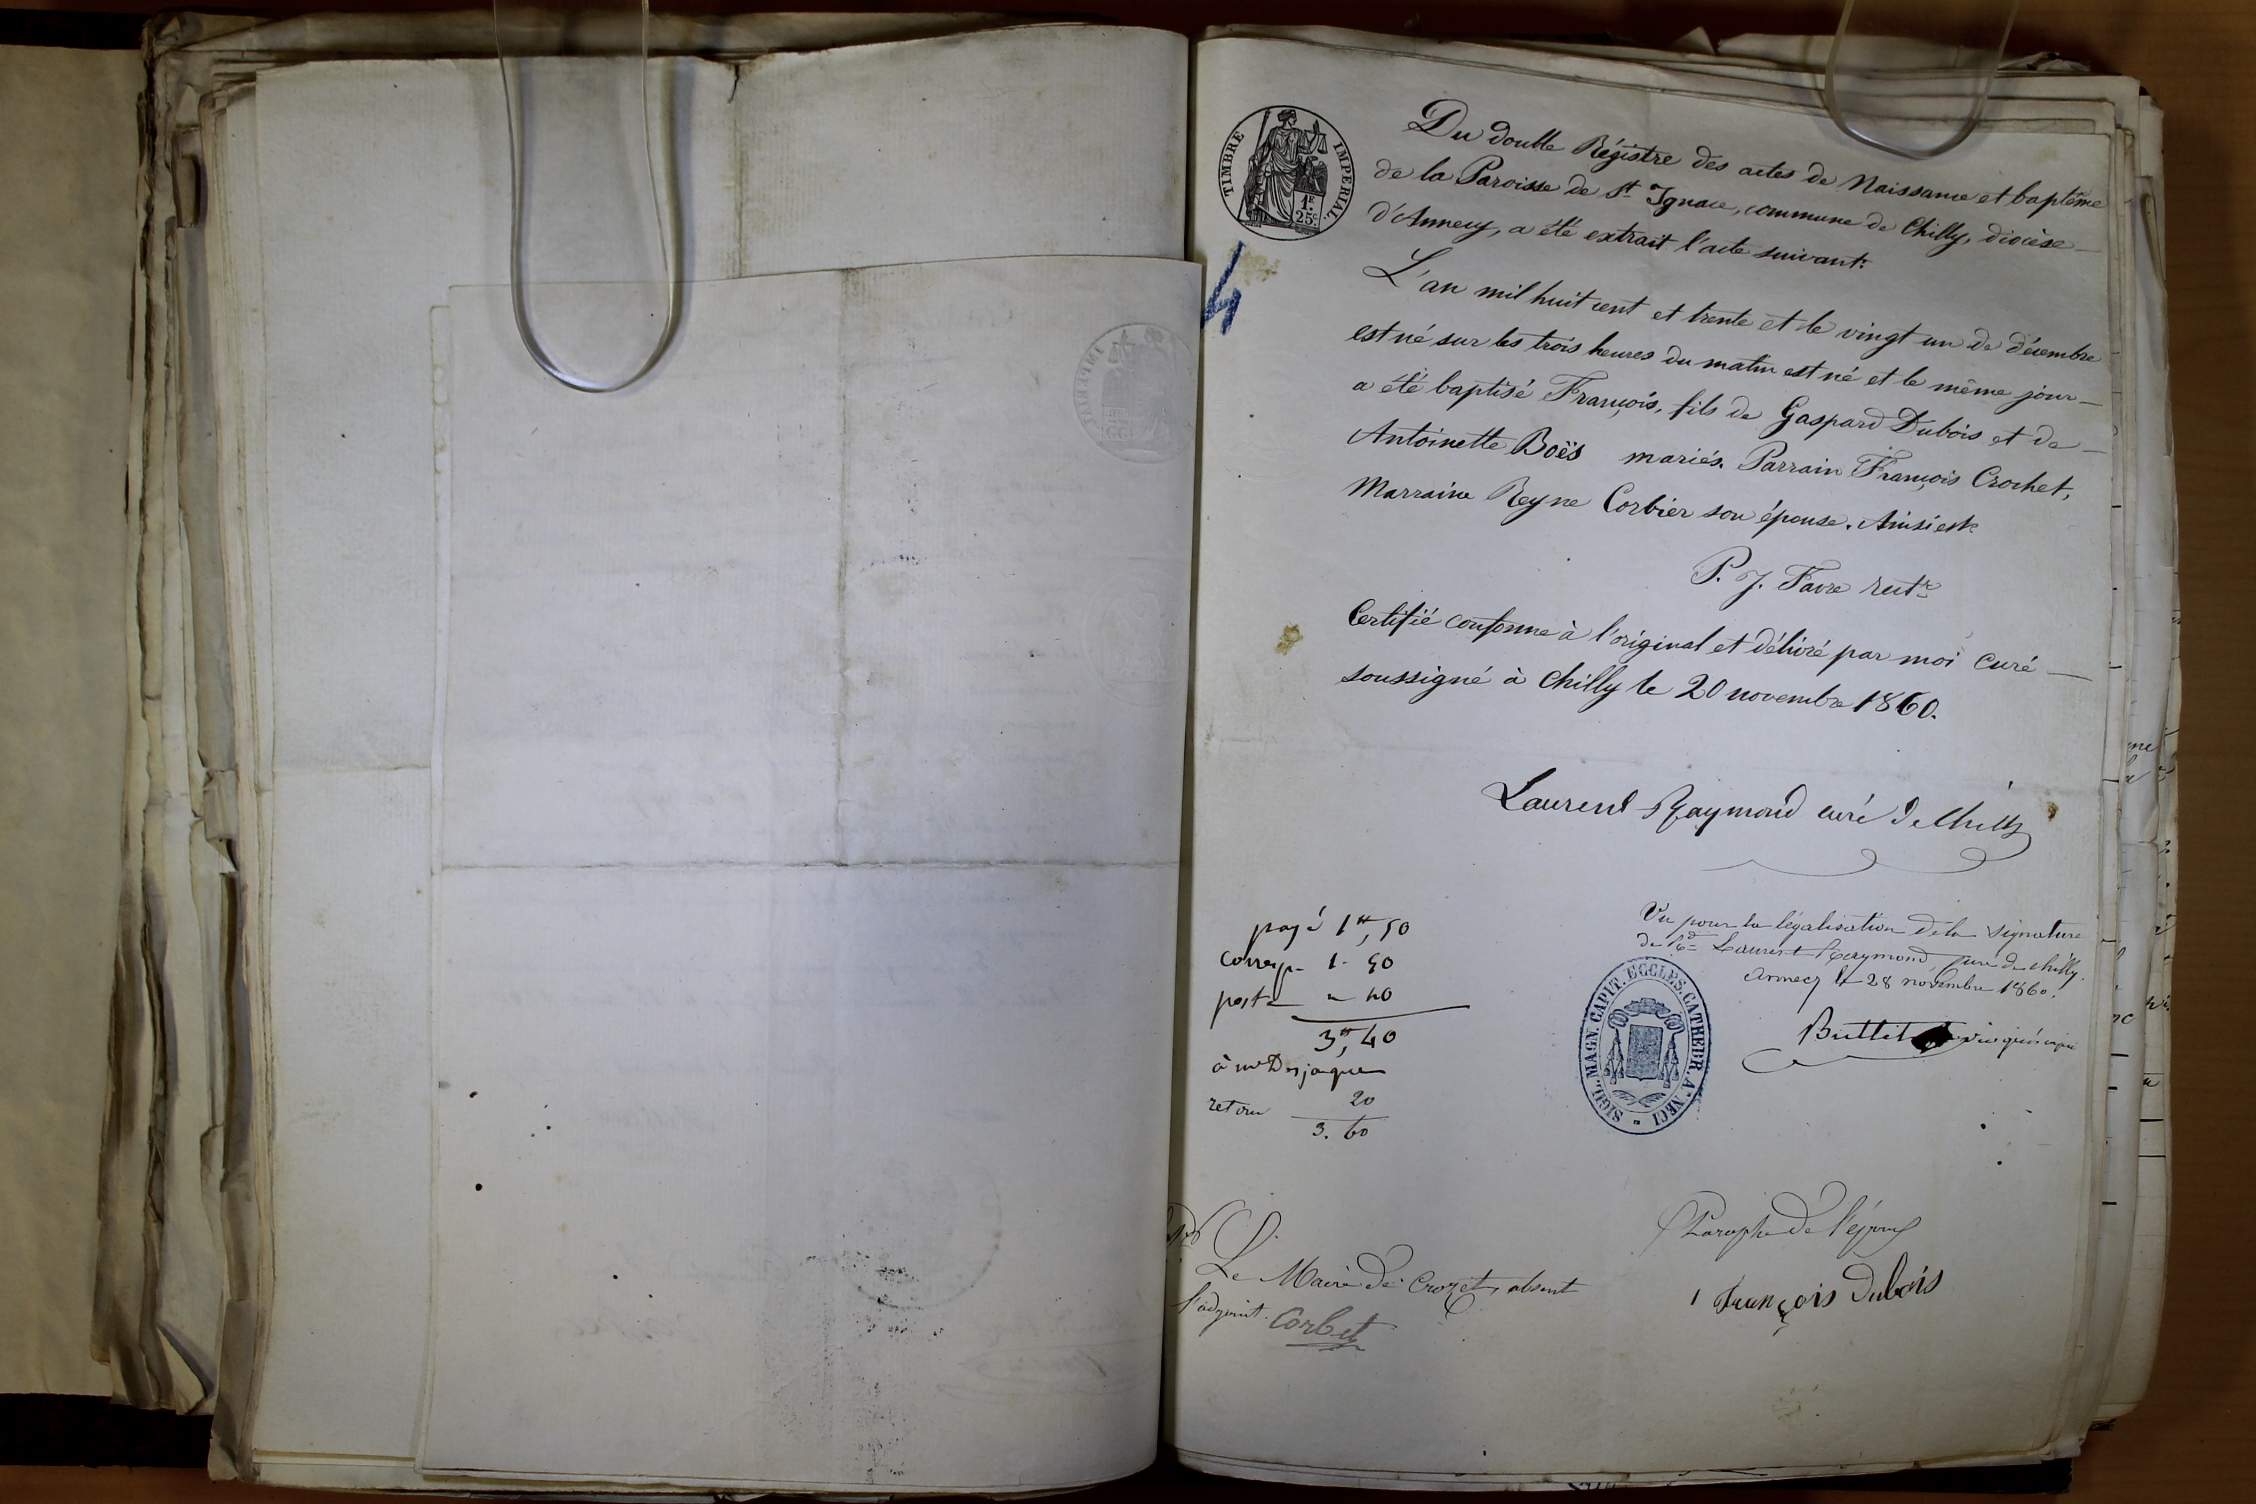 TIMBRE IMPERIAL.
1F. 25c.
4
Du double Régistre des actes de Naissance et baptême
de la Paroisse de St Ignace, commune de Chilly, diocèse
d'Annecy, a été extrait l'acte suivant:
L'an mil huit cent et trente et le vingt un de décembre
est né sur les trois heures du matin est né et le même jour
a été baptisé François, fils de Gaspard Dubois et de
Antoinette Boës mariés. Parrain François Crochet,
Marraine Reyne Corbier son épouse. Ainsi est
P. J. Favre rectr
Certifié conforme à l'original et délivré par moi curé
soussigné à Chilly le 20 novembre 1860.
Laurent Raymond curé de Chilly
Vu pour la légalisation de la signature
de Rd Laurent Raymond curé de Chilly.
Annecy le 28 novembre 1860.
Buttit
SIGIL. MAGN. CAPIT. ECCLES. CATHEDR. A NECI
payé 1tt, 50
corresp. 1. 50
poste 40
3tt, 40
à mr Desjaques
retour 20
3. 60
Le Maire de Crozet, absent
l'adjoint. Corbet
Paraphe de l'époux
François Dubois